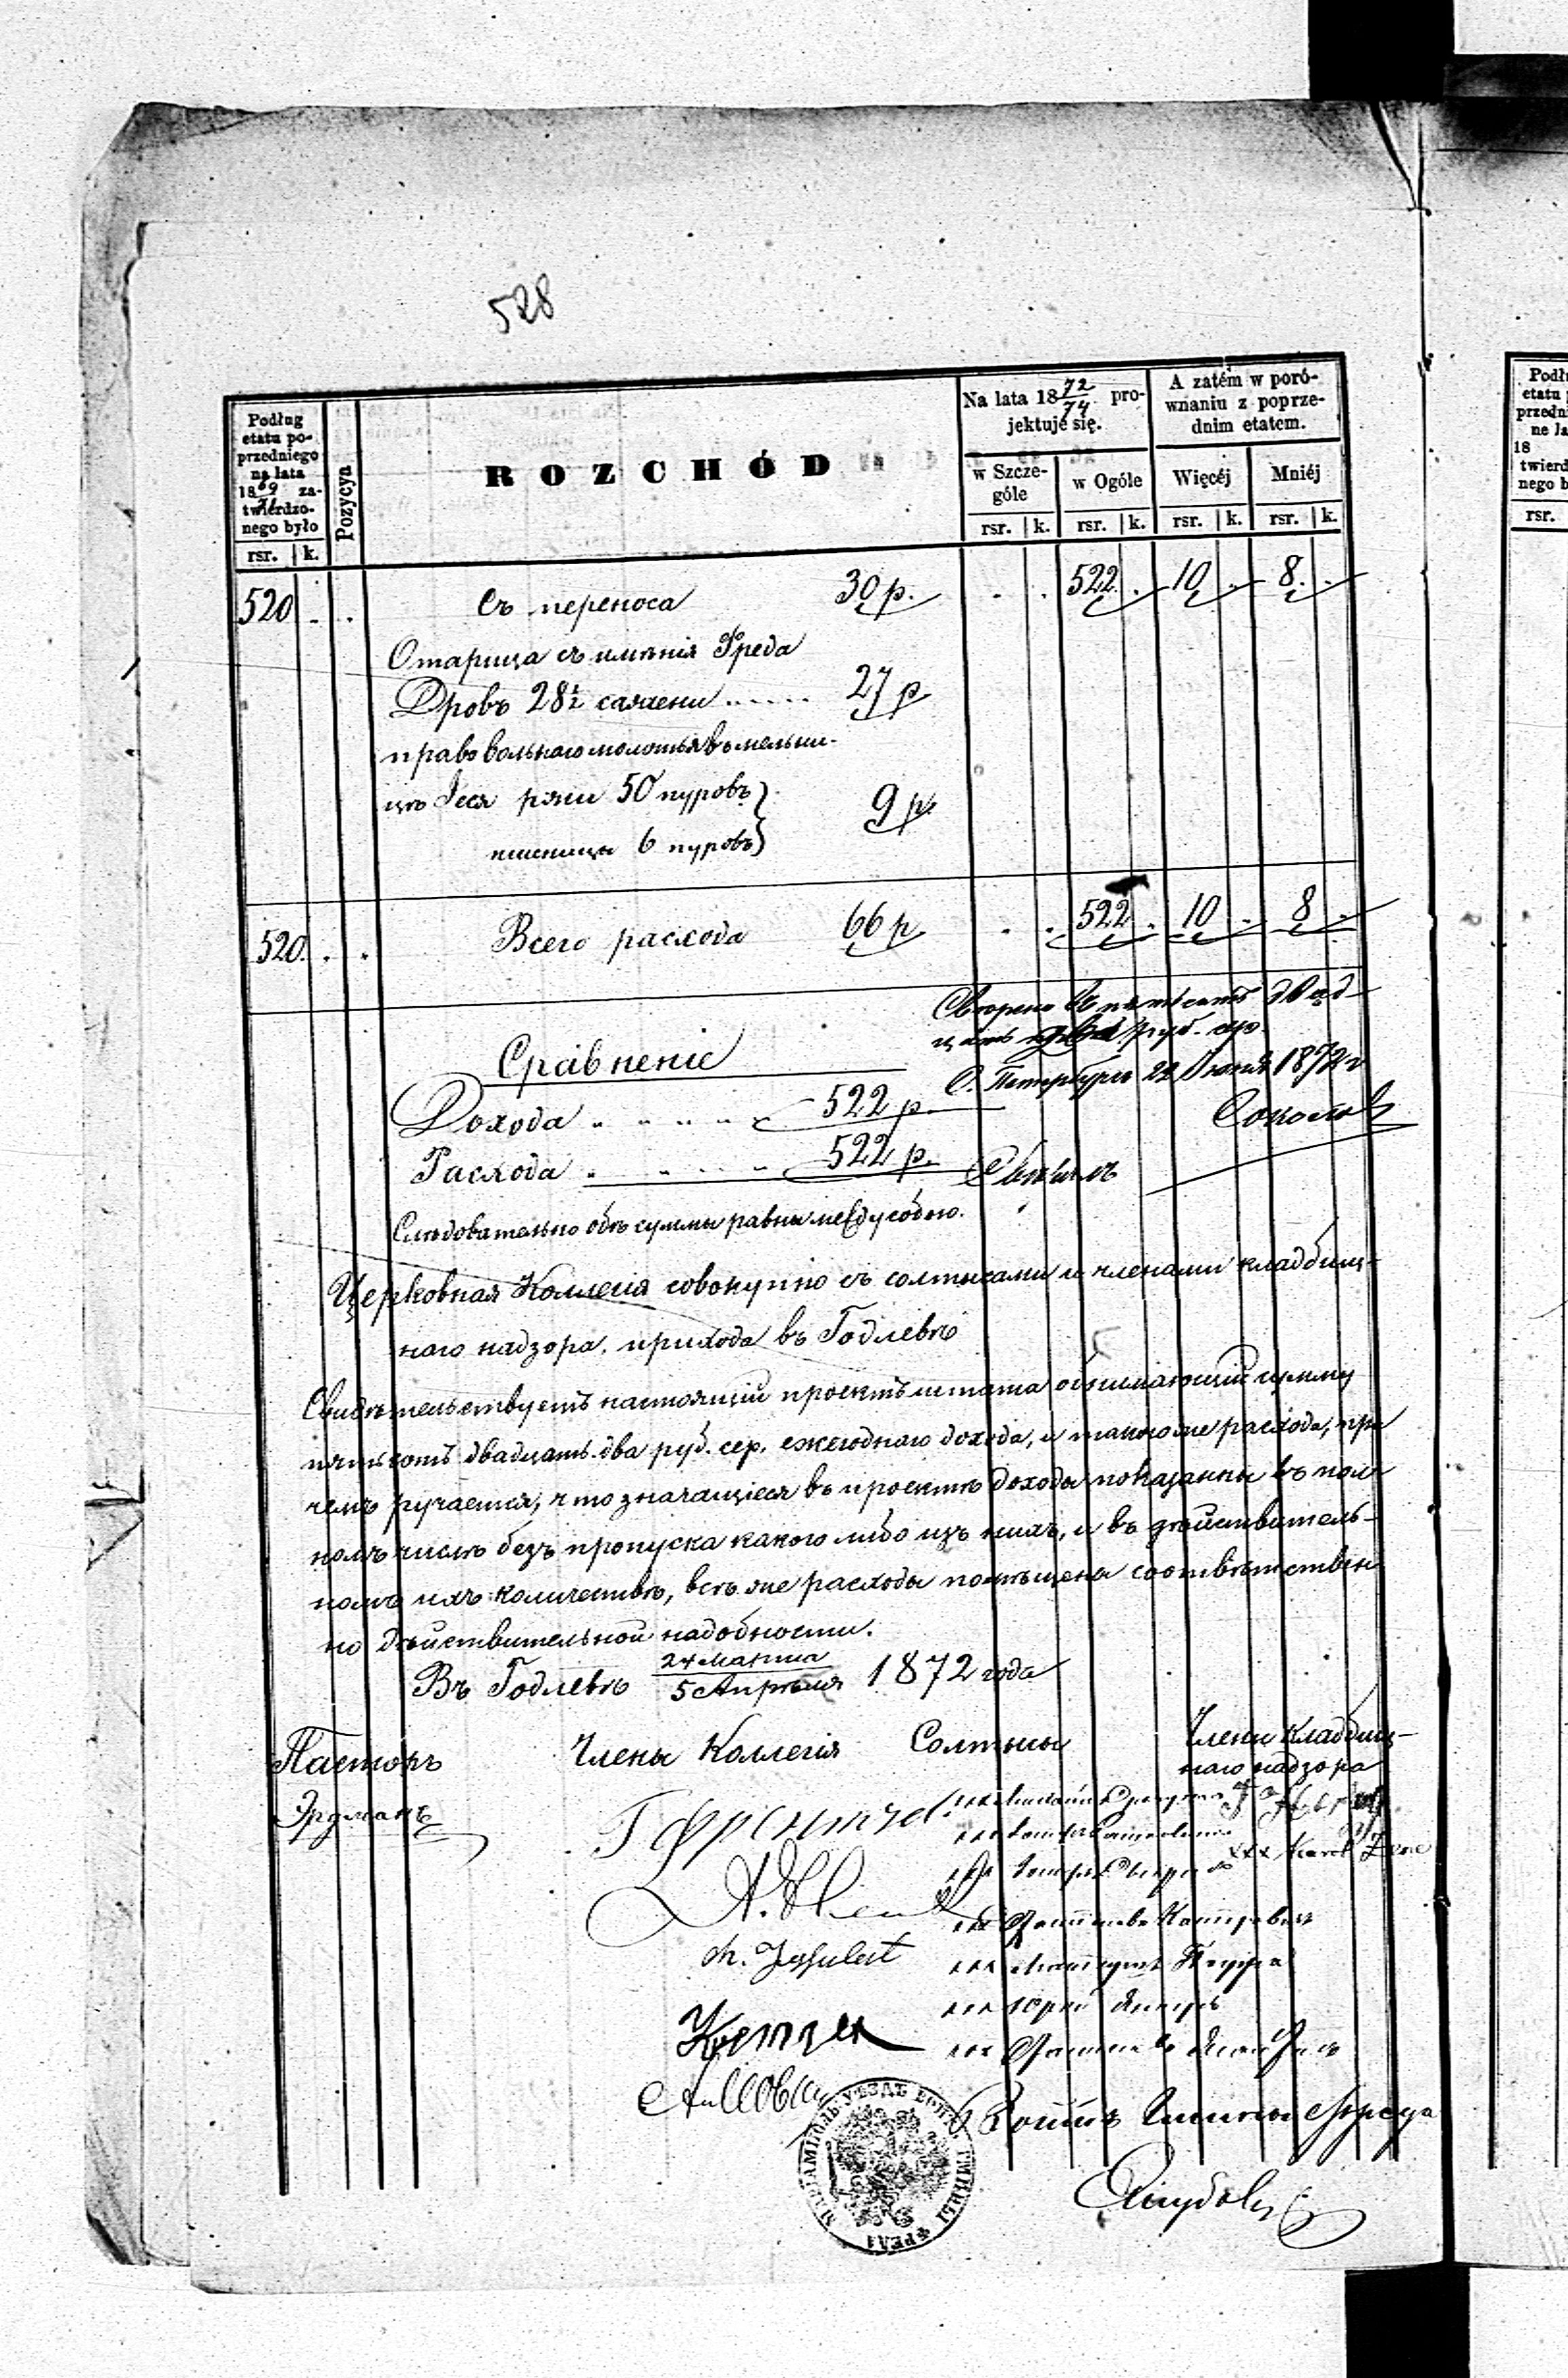 528
Podług etatu poprzedniego na lata 18 69/71 zatwierdzonego było
Pozycya
ROZCHÓD
Na lata 18 72/74 projektuje się.
A zatém w porównaniu z poprzednim etatem.
w Szczególe
w Ogóle
Więcéj
Mniéj
rsr. k. rsr. k. rsr. k. rsr. k. rsr. k.
520 . . Съ переноса 30 р. . . 522 . 10 . 8 .
съ имѣнія Фреда
Дровъ 28½ сажени ..... 27 р
право вольнаго молотья въ мельни-
цѣ Іеся ржи 50 пуровъ
9 р.
пшеницы 6 пуровъ
520. . . Всего расхода 66 р . . 522 . 10 . 8 .
Сравненіе
Дохода 522 р.
Расхода 522 р.
пятьсотъ двад-
цать два руб. сер.
С. Петербургъ 22 1872 г
Соколовъ
Слѣдовательно обѣ суммы равны между собою.
Церковная Коллегія совокупно съ солтысами и членами кладбищ-
наго надзора, прихода въ Годлевѣ
Свидѣтельствуетъ настоящій проектъ штата обнимающій сумму
пятьсотъ двадцать два руб. сер. ежегоднаго дохода, и такого же расхода, при
чемъ ручается, что значащіеся въ проектѣ доходы показаны въ пол-
номъ числѣ безъ пропуска какого либо изъ нихъ, и въ дѣйствитель-
номъ ихъ количествѣ, всѣ же расходы помѣщены соотвѣтствен
но дѣйствительной надобности.
Въ Годлевѣ 24 Марта / 5 Апрѣля 1872 года
Пасторъ
Члены Коллегія
Солтысы
Члены кладбищ-
наго надзора
Эрдманъ
xxx Karol
xxx
xxx
xxx
xxx
xxx Юрій
xxx
Войтъ Гмины Фреда
МАРІАМПОЛЬ. УѢЗДЪ ВОЙТ. ГМИНЫ ФРЕДА